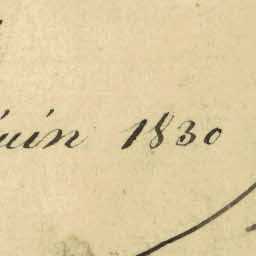 juin 1830